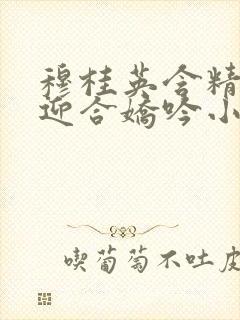 穆桂英含精
迎合嬌吟小
喫葡萄不吐皮